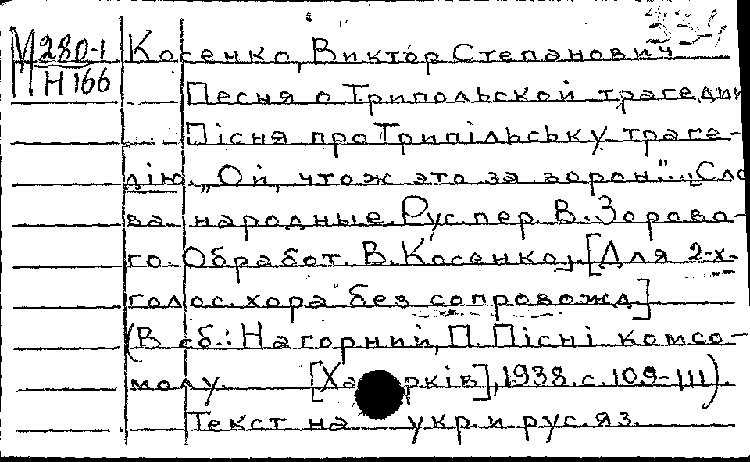 334
М280-1 Косенко, Виктор Степанович
Н166
Песня о Трипольской трагедии
Пісня про Трипільську траге-
дію. „Ой, что ж это за ворон". „Сло
ва народные. Рус.пер. В. Зорово-
го. Обработ. В. Косенко. [Для 2-х.
голос. хора без сопровожд]
(В сб.: Нагорний, П. Пісні комсо-
молу. [Харків], 1938. с. 109-111).
Текст на укр. и рус. яз.